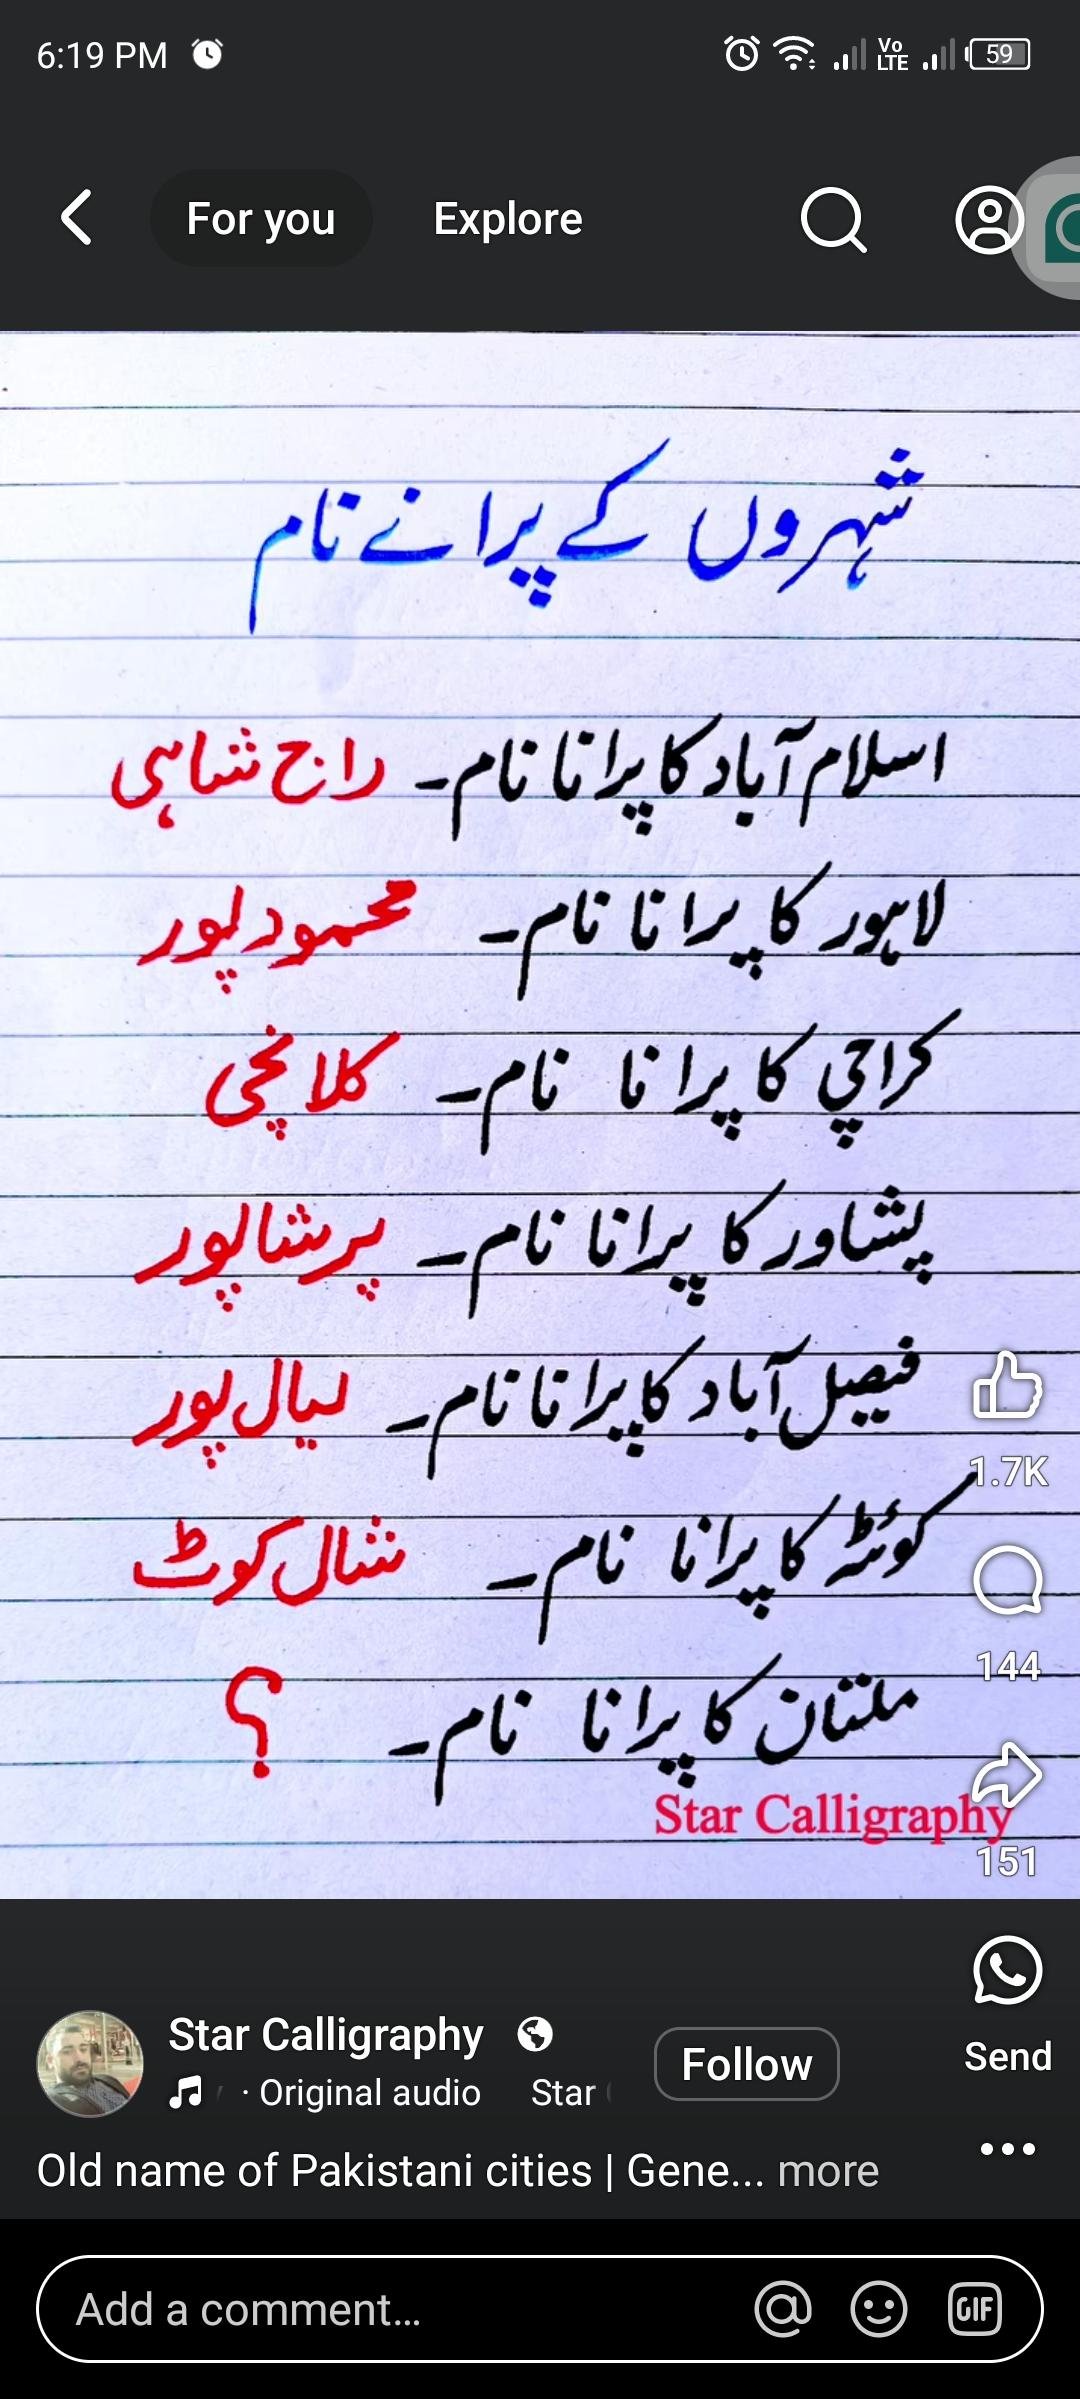 6:19 PM
Vo LTE
59
For you
Explore
شہروں کے پرانے نام
اسلام آباد کا پرانا نام۔ راج شاہی
لاہور کا پرانا نام۔ محمود پور
کراچی کا پرانا نام۔ کلانچی
پشاور کا پرانا نام۔ پرشاپور
فیصل آباد کا پرانا نام۔ لیال پور
کوئٹہ کا پرانا نام۔ شال کوٹ
ملتان کا پرانا نام۔ ؟
Star Calligraphy
1.7K
144
151
Send
Star Calligraphy
Follow
· Original audio Star
Old name of Pakistani cities | Gene... more
Add a comment...
GIF